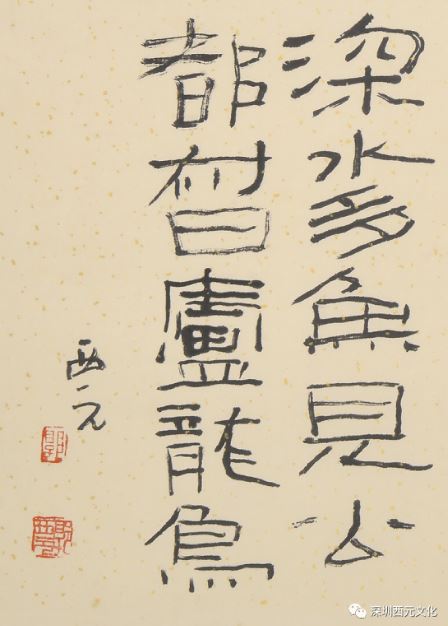 深水多魚見公
都督盧龍
西元
郭
深圳西元文化